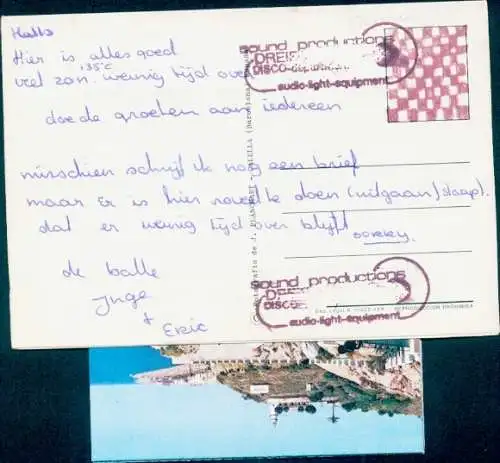 Hallo
Hier is alles goed
veel zon 35°C weinig tijd over
doe de groeten aan iedereen
misschien schrijf ik nog een brief
maar er is hier zoveel te doen (uitgaan/slaap).
dat er weinig tijd over blijft
sorry
de balle
Inge
+
Eric
sound productions
DREI
DISCO-equipment
audio-light-equipment
sound productions
DREI
DISCO
audio-light-equipment
CALELLA (Barcelona)